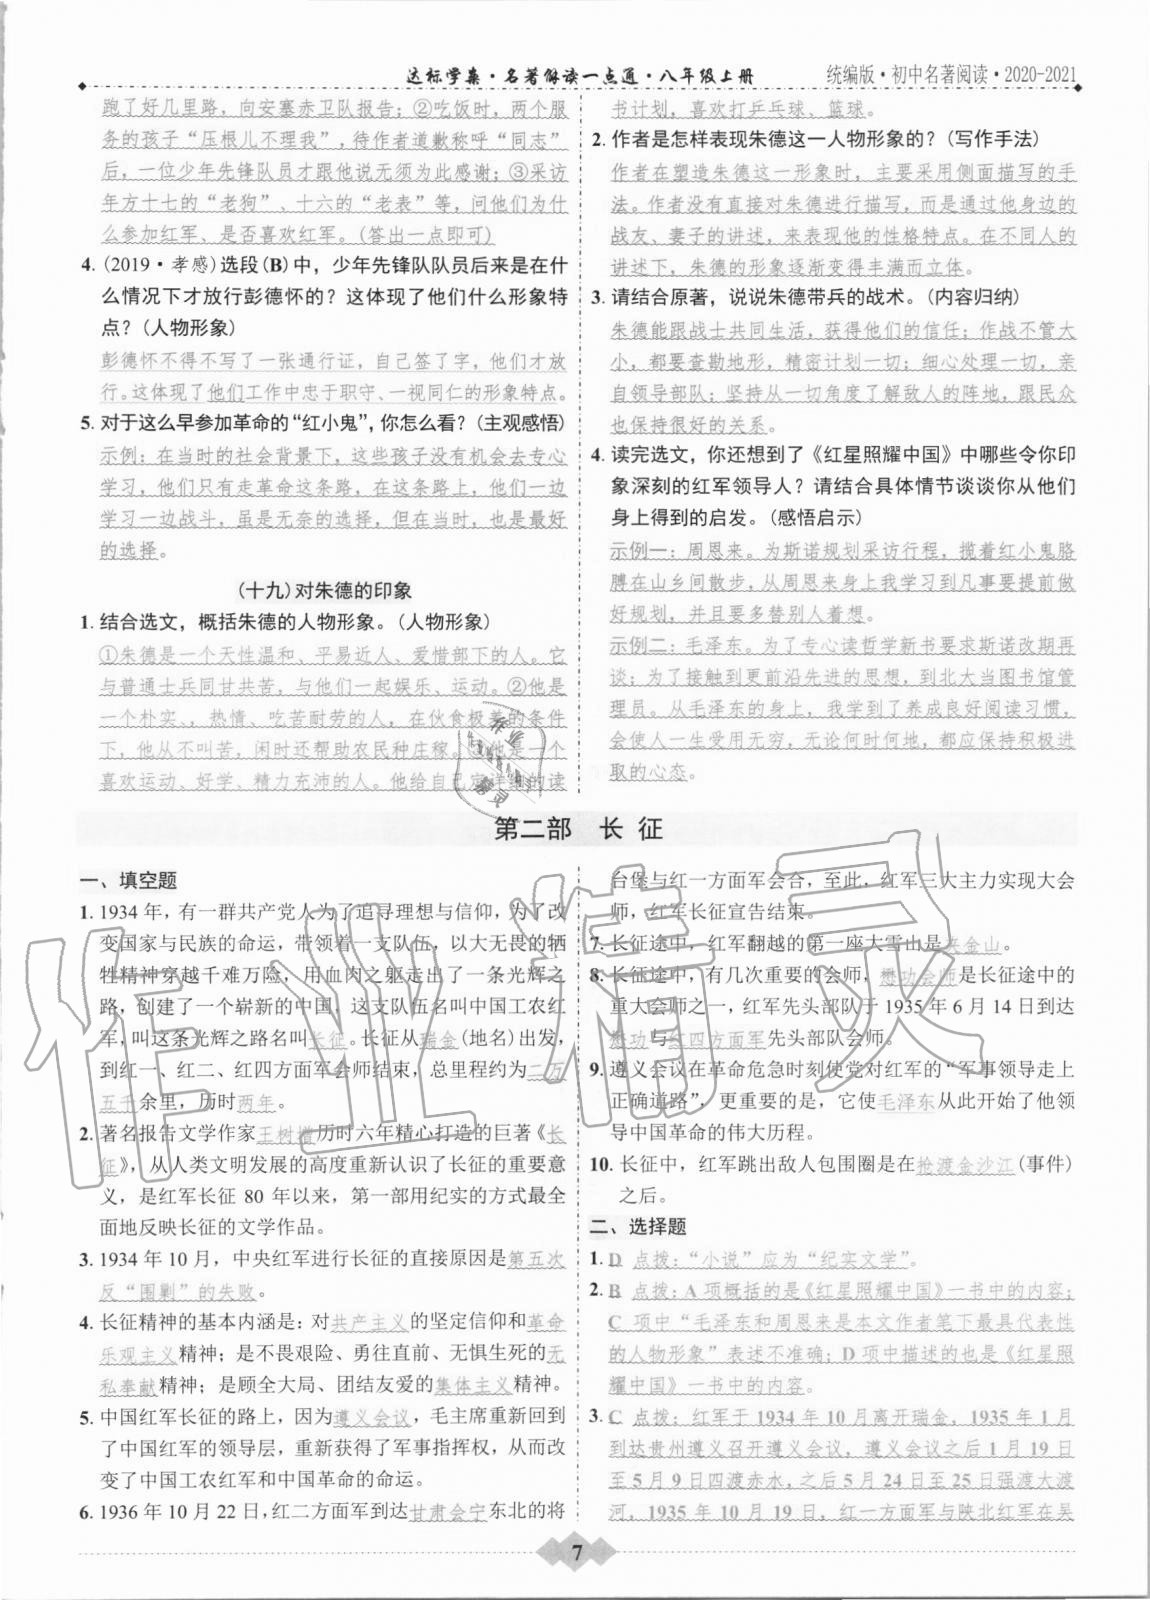 达标学案·名著解读一点通·八年级上册
统编版·初中名著阅读·2020-2021
跑了好几里路，向安塞赤卫队报告；②吃饭时，两个服
务的孩子“压根儿不理我”，待作者道歉称呼“同志”
后，一位少年先锋队员才跟他说无须为此感谢；③采访
年方十七的“老狗”、十六的“老表”等，问他们为什
么参加红军、是否喜欢红军。(答出一点即可)
4. (2019·孝感)选段(B)中，少年先锋队队员后来是在什
么情况下才放行彭德怀的？这体现了他们什么形象特
点？(人物形象)
彭德怀不得不写了一张通行证，自己签了字，他们才放
行。这体现了他们工作中忠于职守、一视同仁的形象特点。
5. 对于这么早参加革命的“红小鬼”，你怎么看？(主观感悟)
示例：在当时的社会背景下，这些孩子没有机会去专心
学习，他们只有走革命这条路，在这条路上，他们一边
学习一边战斗，虽是无奈的选择，但在当时，也是最好
的选择。
(十九)对朱德的印象
1. 结合选文，概括朱德的人物形象。(人物形象)
①朱德是一个天性温和、平易近人、爱惜部下的人。它
与普通士兵同甘共苦，与他们一起娱乐、运动。②他是
一个朴实、，热情、吃苦耐劳的人，在伙食极差的条件
下，他从不叫苦，闲时还帮助农民种庄稼。③他是一个
喜欢运动、好学、精力充沛的人。他给自己定详细的读
书计划，喜欢打乒乓球、篮球。
2. 作者是怎样表现朱德这一人物形象的？(写作手法)
作者在塑造朱德这一形象时，主要采用侧面描写的手
法。作者没有直接对朱德进行描写，而是通过他身边的
战友、妻子的讲述，来表现他的性格特点。在不同人的
讲述下，朱德的形象逐渐变得丰满而立体。
3. 请结合原著，说说朱德带兵的战术。(内容归纳)
朱德能跟战士共同生活，获得他们的信任；作战不管大
小，都要查勘地形，精密计划一切；细心处理一切，亲
自领导部队；坚持从一切角度了解敌人的阵地，跟民众
也保持很好的关系。
4. 读完选文，你还想到了《红星照耀中国》中哪些令你印
象深刻的红军领导人？请结合具体情节谈谈你从他们
身上得到的启发。(感悟启示)
示例一：周恩来。为斯诺规划采访行程，揽着红小鬼胳
膊在山乡间散步，从周恩来身上我学习到凡事要提前做
好规划，并且要多替别人着想。
示例二：毛泽东。为了专心读哲学新书要求斯诺改期再
谈；为了接触到更前沿先进的思想，到北大当图书馆管
理员。从毛泽东的身上，我学到了养成良好阅读习惯，
会使人一生受用无穷，无论何时何地，都应保持积极进
取的心态。
第二部 长 征
一、填空题
1. 1934 年，有一群共产党人为了追寻理想与信仰，为了改
变国家与民族的命运，带领着一支队伍，以大无畏的牺
牲精神穿越千难万险，用血肉之躯走出了一条光辉之
路，创建了一个崭新的中国，这支队伍名叫中国工农红
军，叫这条光辉之路名叫长征。长征从瑞金(地名)出发，
到红一、红二、红四方面军会师结束，总里程约为二万
五千余里，历时两年。
2. 著名报告文学作家王树增历时六年精心打造的巨著《长
征》，从人类文明发展的高度重新认识了长征的重要意
义，是红军长征 80 年以来，第一部用纪实的方式最全
面地反映长征的文学作品。
3. 1934 年 10 月，中央红军进行长征的直接原因是第五次
反“围剿”的失败。
4. 长征精神的基本内涵是：对共产主义的坚定信仰和革命
乐观主义精神；是不畏艰险、勇往直前、无惧生死的无
私奉献精神；是顾全大局、团结友爱的集体主义精神。
5. 中国红军长征的路上，因为遵义会议，毛主席重新回到
了中国红军的领导层，重新获得了军事指挥权，从而改
变了中国工农红军和中国革命的命运。
6. 1936 年 10 月 22 日，红二方面军到达甘肃会宁东北的将
台堡与红一方面军会合，至此，红军三大主力实现大会
师，红军长征宣告结束。
7. 长征途中，红军翻越的第一座大雪山是夹金山。
8. 长征途中，有几次重要的会师，懋功会师是长征途中的
重大会师之一，红军先头部队于 1935 年 6 月 14 日到达
懋功与红四方面军先头部队会师。
9. 遵义会议在革命危急时刻使党对红军的“军事领导走上
正确道路”，更重要的是，它使毛泽东从此开始了他领
导中国革命的伟大历程。
10. 长征中，红军跳出敌人包围圈是在抢渡金沙江(事件)
之后。
二、选择题
1. D 点拨：“小说”应为“纪实文学”。
2. B 点拨：A 项概括的是《红星照耀中国》一书中的内容；
C 项中“毛泽东和周恩来是本文作者笔下最具代表性
的人物形象”表述不准确；D 项中描述的也是《红星照
耀中国》一书中的内容。
3. C 点拨：红军于 1934 年 10 月离开瑞金，1935 年 1 月
到达贵州遵义召开遵义会议，遵义会议之后 1 月 19 日
至 5 月 9 日四渡赤水，之后 5 月 24 日至 25 日强渡大渡
河，1935 年 10 月 19 日，红一方面军与陕北红军在吴
7
作业精灵
作业
精灵